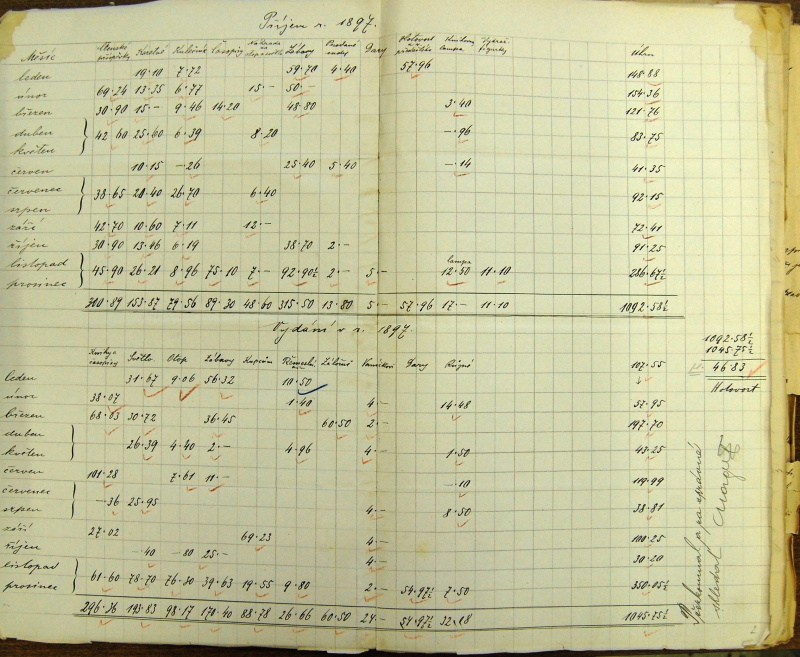 Příjem r. 1897.
Měsíc Členské příspěvky Kuželník Časopisy Náhrada Zábavy Prodané Dary Hotovost Úhrn
leden 19·10 7·72 59·70 4·40 57·96 148·88
únor 69·24 13·35 6·77 15·— 50·— 154·36
březen 30·90 15·— 9·46 14·20 48·80 3·40 121·76
duben
květen } 42 60 25·60 6·39 8·20 —·96 83·75
červen 10·15 —·26 25·40 5·40 —·14 41·35
červenec
srpen } 38·65 20·40 26·70 6·40 92·15
září 42·70 10·60 7·11 12·— 72·41
říjen 30·90 13·46 6·19 38·70 2·— 91·25
listopad
prosinec } 45·90 26·21 8·96 75·10 7·— 92·90½ 2·— 5·— lampa 12·50 11·10 286·67½
310·89 153·87 79·56 89·30 48·60 315·50 13·80 5·— 57·96 17·— 11·10 1092·58½
Vydání v r. 1897.
Knihy a časopisy Světlo Otop Zábavy Kupcům Řemesl. Dary Různé
leden 31·67 9·06 56·32 10·50 107·55
únor 38·07 1·40 4·— 14·48 57·95
březen 68·03 30·72 36·45 60·50 2·— 197·70
duben
květen } 26·39 4·40 2·— 4·96 4·— 1·50 43·25
červen 101·28 7·61 11·— —·10 119·99
červenec
srpen } —·36 25·95 4·— 8·50 38·81
září 27·02 69·23 4·— 100·25
říjen —·40 —·80 25·— 4·— 30·20
listopad
prosinec } 61·60 78·70 76·30 39·63 19·55 9·80 2·— 54·97½ 7·50 350·05½
296·36 193·83 98·17 170·40 88·78 26·66 60·50 24·— 54·97½ 32·18 1045·75½
1092·58½
1045·75½
46·83
Hotovost
shledal